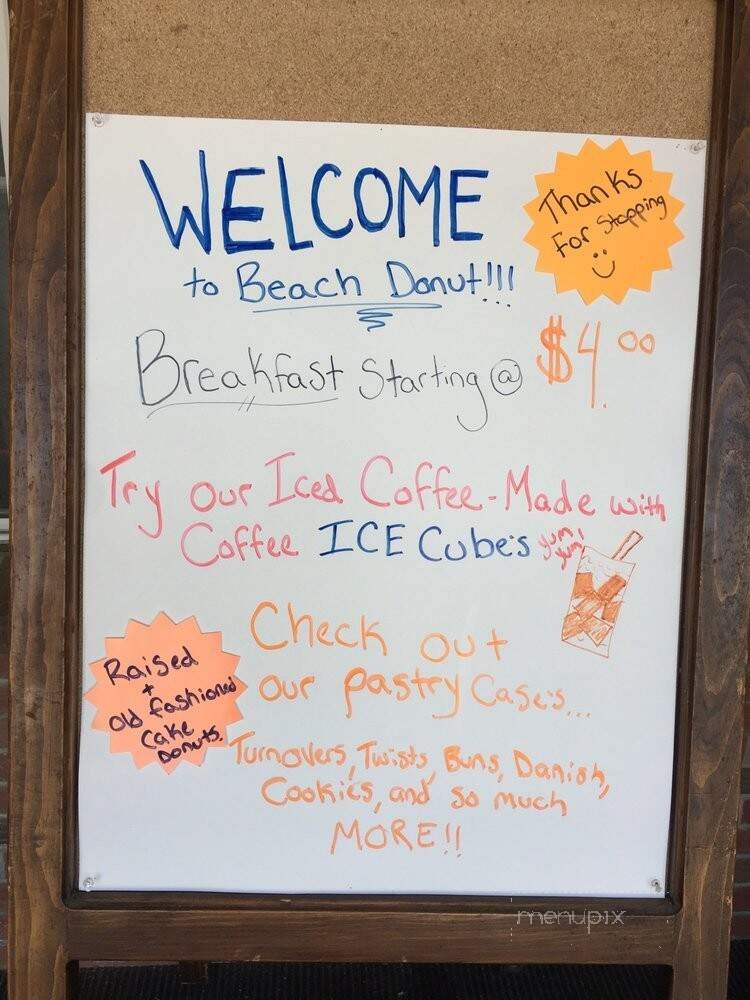 WELCOME
to Beach Donut!!!
Thanks
For Stopping
Breakfast Starting @ $4.00
Try our Iced Coffee - Made with
Coffee ICE Cubes yum! yum!
Check out
our pastry Cases...
Raised
+
old fashioned
Cake
Donuts.
Turnovers, Twists, Buns, Danish,
Cookies, and so much
MORE!!
menupix